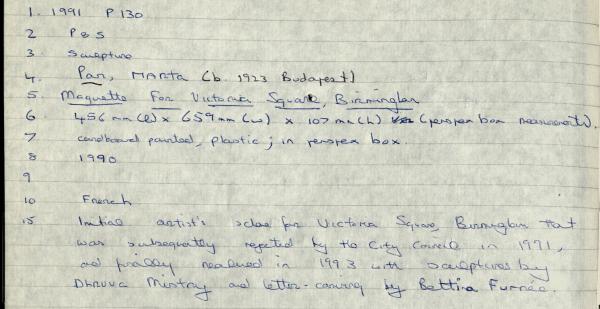 1. 1991 P 130
2 P & S
3. Sculpture
4. Pan, MARTA (b. 1923 Budapest)
5. Maquette For Victoria Square, Birmingham
6 456 mm (l) x 659 mm (w) x 107 mm (h) (perspex box measurements).
7 cardboard painted, plastic; in perspex box.
8 1990
9
10 French
15 Initial artist's idea for Victoria Square, Birmingham that
was subsequently rejected by the City Council in 1991,
and finally realised in 1993 with sculptures by
Dhruva Mistry and letter-carving by Bettina Furnée.